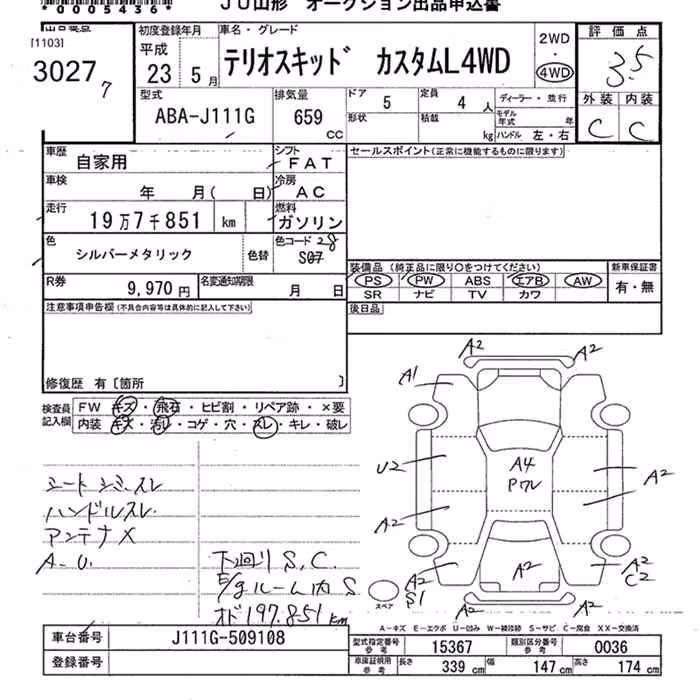 *0005436*
JU山形 オークション出品申込書
出品受点
[1103]
3027
7
初度登録年月
平成
23 年 5 月
車名・グレード
テリオスキッド カスタムL4WD
2WD
・
4WD
評価点
3.5
外装 内装
C C
型式
ABA-J111G
排気量
659
CC
ドア 5
定員 4 人
形状
積載 kg
ディーラー・並行
モデル年式 年
ハンドル 左・右
車歴 自家用
シフト FAT
セールスポイント(正常に機能するものに限ります)
車検 年 月( 日)
冷房 AC
走行 19万7千851 km
燃料 ガソリン
色 シルバーメタリック
色替
色コード 28
S07
R券 9,970 円
名変通知期限 月 日
装備品 (純正品に限り○をつけてください)
新車保証書
PS PW ABS エアB AW
SR ナビ TV カワ
有・無
注意事項申告欄(不具合内容等は具体的に記入して下さい)
後日品
修復歴 有〔箇所 〕
検査員
記入欄
FW キズ・飛石・ヒビ割・リペア跡・×要
内装 キズ・汚レ・コゲ・穴・スレ・キレ・破レ
シートシミ、スレ
ハンドルスレ
アンテナX
A-U.
下廻り S.C.
E/gルーム内 S
オド197.851km
A2 A2
A1
U2
A4
Pワレ
A2
A2
A2 A2 A2
S1 C2
A2 A2
スペア
A-キズ E-エクボ U-凹み W-補修跡 S-サビ C-腐食 XX-交換済
車台番号 J111G-509108
登録番号
型式指定番号 参考 15367
類別区分番号 参考 0036
車庫証明用 参考 長さ 339 cm 幅 147 cm 高さ 174 cm